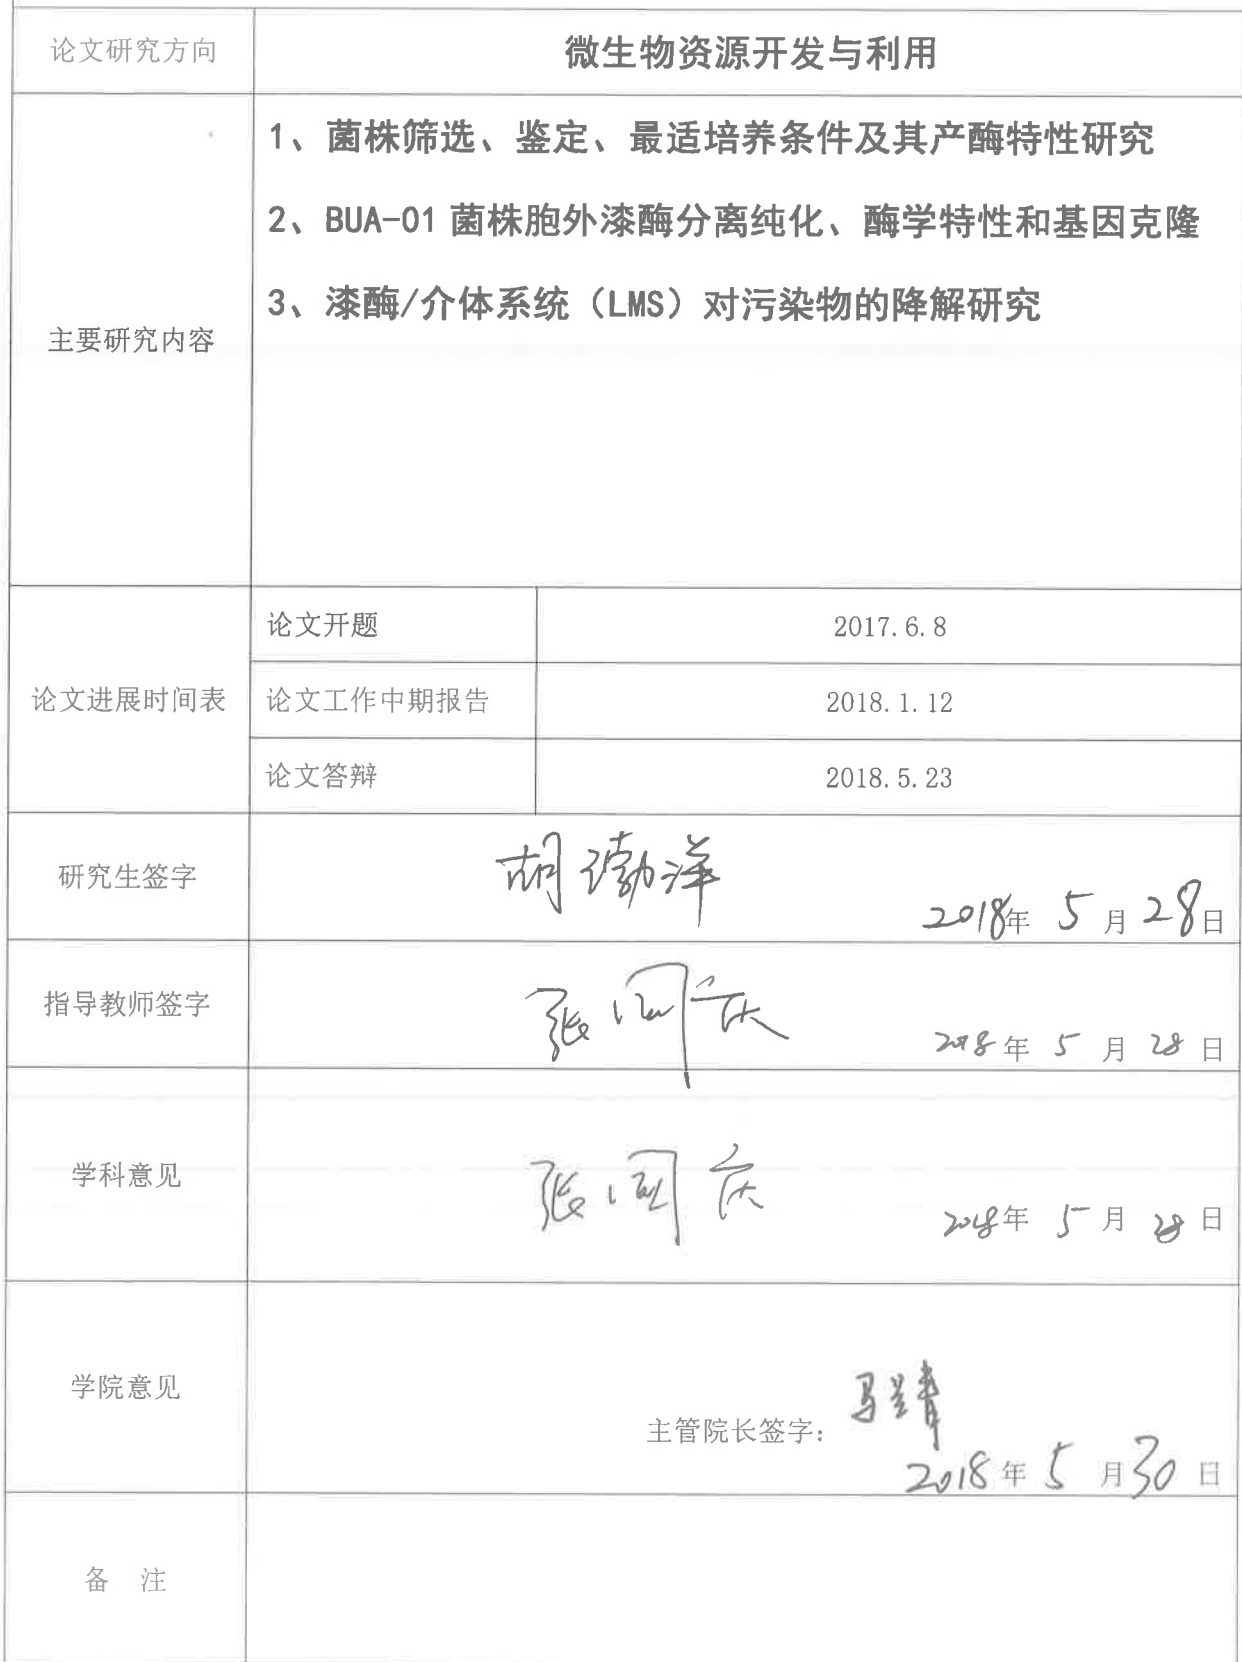 论文研究方向 微生物资源开发与利用
1、菌株筛选、鉴定、最适培养条件及其产酶特性研究
2、BUA-01菌株胞外漆酶分离纯化、酶学特性和基因克隆
3、漆酶/介体系统（LMS）对污染物的降解研究
主要研究内容
论文开题 2017.6.8
论文进展时间表 论文工作中期报告 2018.1.12
论文答辩 2018.5.23
研究生签字 胡渤洋
2018年 5 月 28日
指导教师签字 张国庆
2018年 5 月 28 日
学科意见 张国庆
2018年 5 月 28 日
学院意见
主管院长签字：
2018年 5 月 30 日
备 注